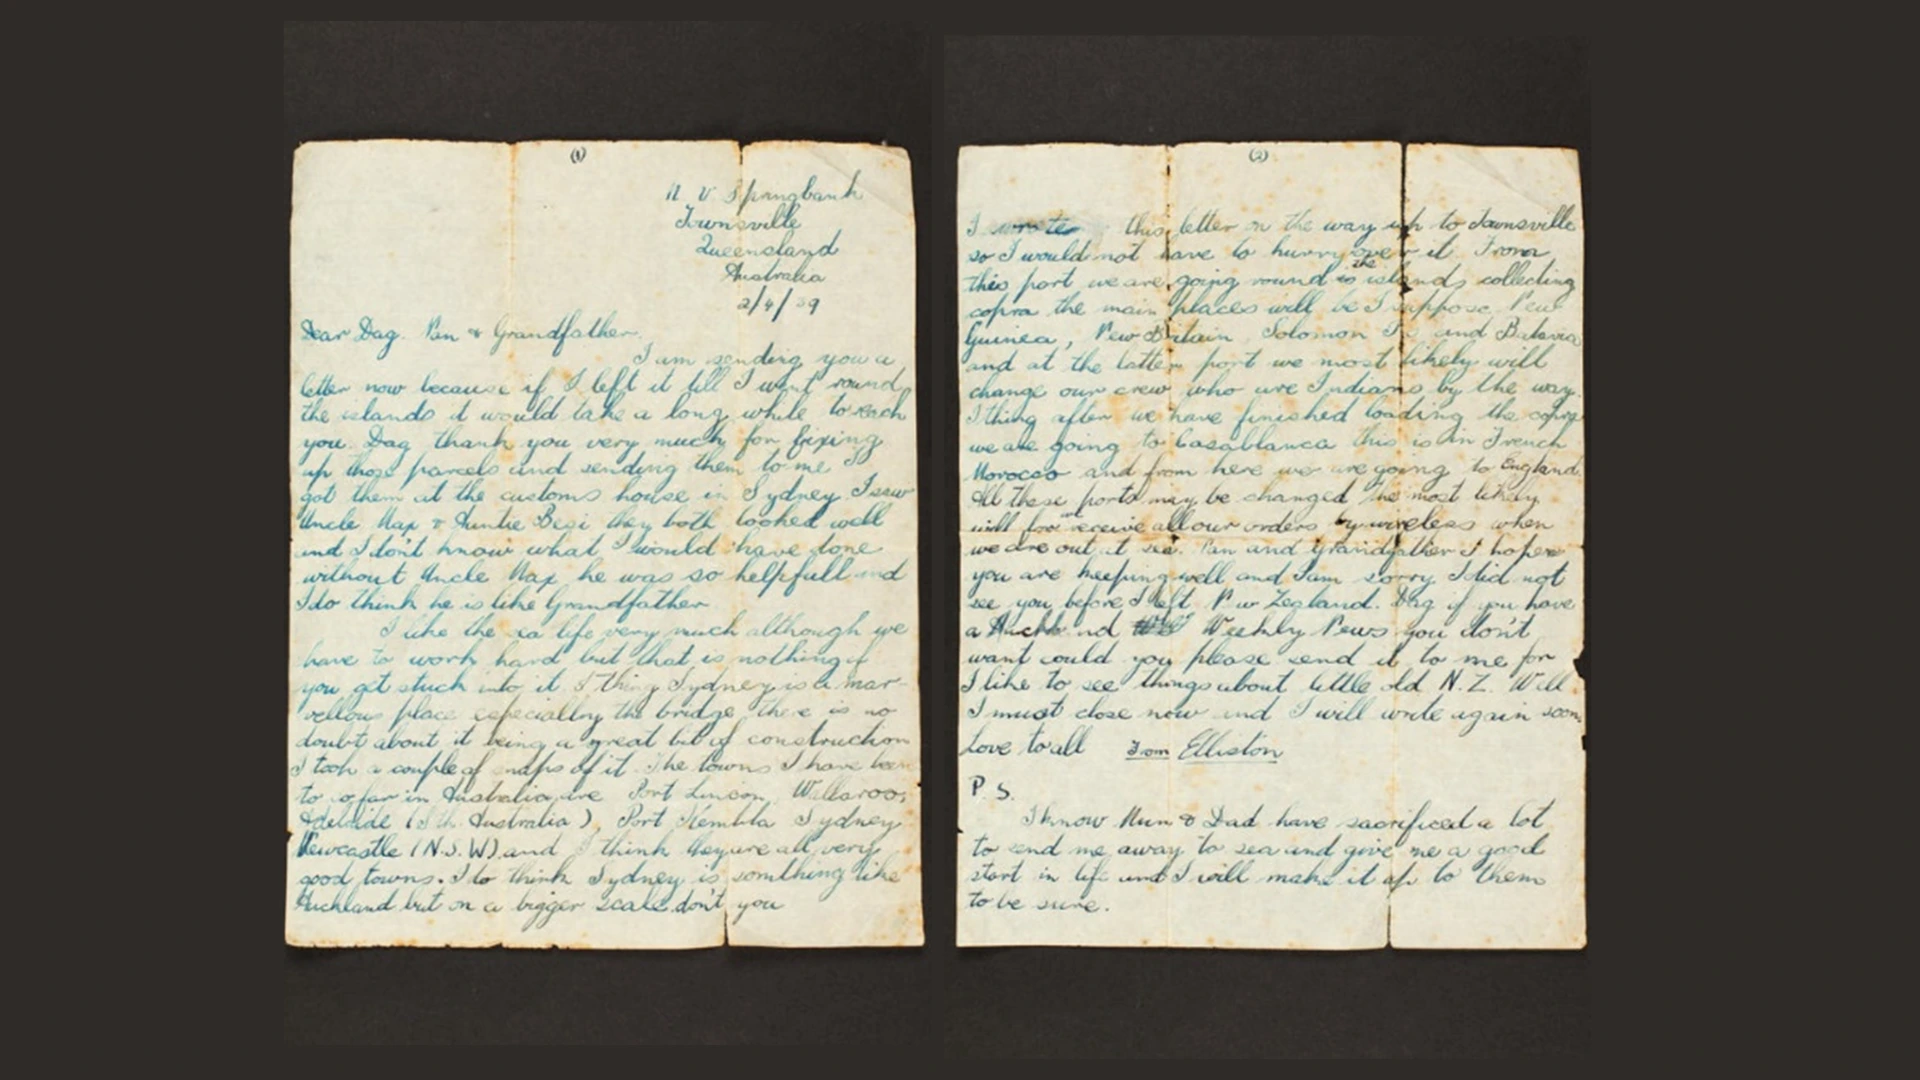 (1)
M V Springbank
Townsville
Queensland
Australia
2/4/39
Dear Dag. Pan & Grandfather.
I am sending you a
letter now because if I left it till I went round
the islands it would take a long while to reach
you. Dag thank you very much for fixing
up those parcels and sending them to me I
got them at the customs house in Sydney I saw
Uncle Max & Auntie they both looked well
and I don't know what I would have done
without Uncle Max he was so helpfull and
I do think he is like Grandfather
I like the sea life very much although we
have to work hard but that is nothing if
you get stuck into it I thing Sydney is a mar-
vellous place especially the bridge there is no
doubt about it being a great bit of construction
I took a couple of snaps of it The towns I have been
to so far in Australia are Port Lincon, Wallaroo,
Adelaide (Sth. Australia), Port Kembla Sydney
Newcastle (N.S.W) and I think they are all very
good towns. I to think Sydney is somthing like
Auckland but on a bigger scale don't you
(2)
I wrote this letter on the way up to Townsville
so I would not have to hurry over it From
this port we are going round the islands collecting
copra the main places will be I suppose New
Guinea, New Britain Solomon Is and Batavia
and at the latter port we most likely will
change our crew who are Indians by the way.
I thing after we have finished loading the copra
we are going to Casablanca this is in French
Morocco and from here we are going to England.
All these ports may be changed most likely
will for we receive all our orders by wireless when
we are out at sea. Pan and Grandfather I hope
you are keeping well and I am sorry I did not
see you before I left New Zealand. Dag if you have
a Auckland Weekly News you don't
want could you please send it to me for
I like to see things about little old N.Z. Well
I must close now and I will write again soon
Love to all from Elliston
P.S.
I know Mum & Dad have sacrificed a lot
to send me away to sea and give me a good
start in life and I will make it up to them
to be sure.